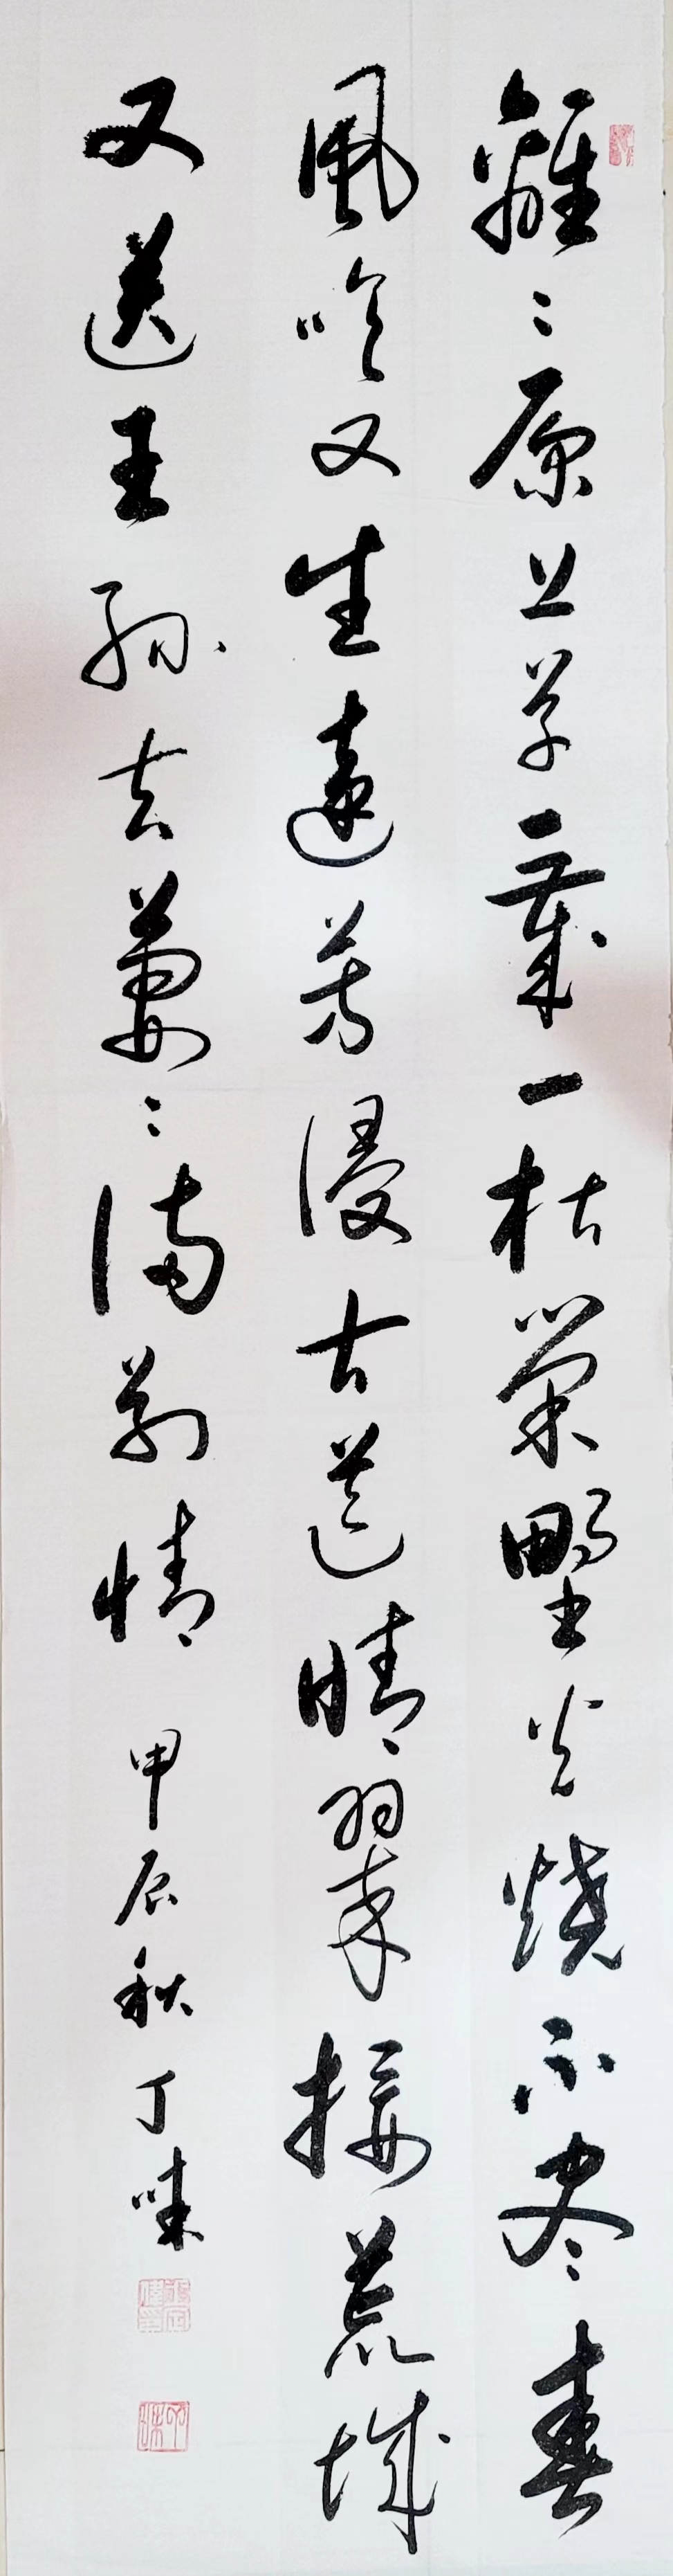 離〻原上草一歲一枯榮野火燒不尽春
風吹又生遠芳侵古道晴翠接荒城
又送王孫去萋〻滿別情
甲辰秋丁味